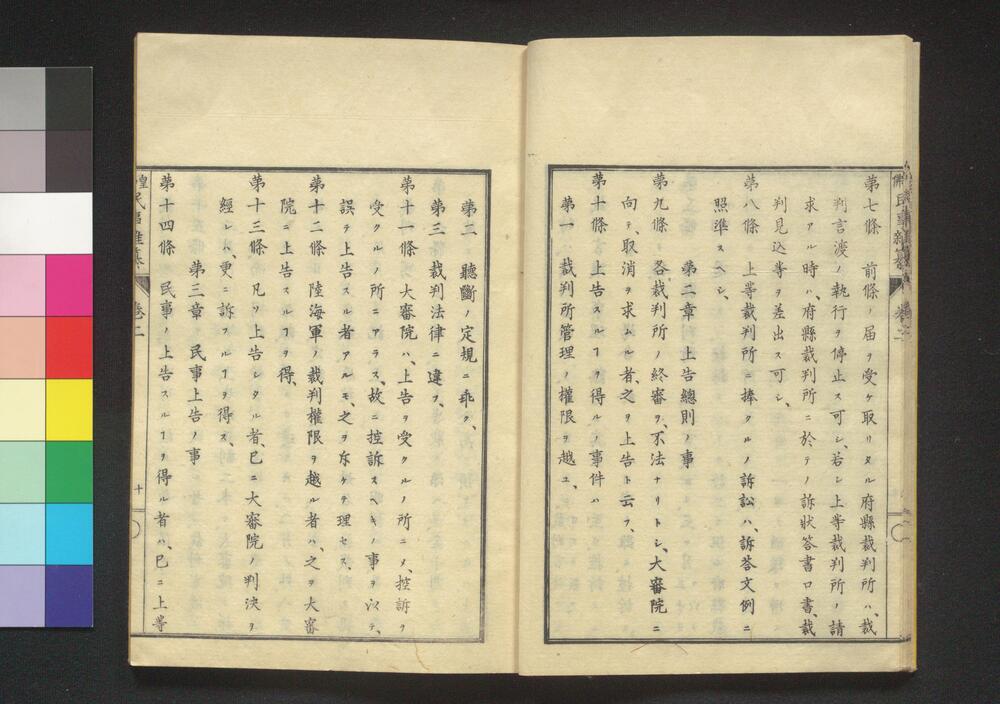 第七條 前條ノ届ヲ受ケ取リタル府縣裁判所ハ、裁
判言渡ノ執行ヲ停止ス可シ、若シ上等裁判所ノ請
求アル時ハ、府縣裁判所ニ於テノ訴狀答書口書、裁
判見込等ヲ差出ス可シ、
第八條 上等裁判所ニ捧クルノ訴訟ハ、訴答文例ニ
照準スヘシ、
第二章 上告總則ノ事
第九條 各裁判所ノ終審ヲ、不法ナリトシ、大審院ニ
向テ、取消ヲ求ムル者、之ヲ上告ト云フ、
第十條 上告スルヿヲ得ルノ事件ハ
第一 裁判所管理ノ權限ヲ越ユ、
第二 聽斷ノ定規ニ乖ク、
第三 裁判法律ニ違フ、
第十一條 大審院ハ、上告ヲ受クルノ所ニメ、控訴ヲ
受クルノ所ニアラス、故ニ控訴スヘキノ事ヲ以テ、
誤テ上告スル者アルモ、之ヲ斥ケテ理セス、
第十二條 陸海軍ノ裁判權限ヲ越ル者ハ、之ヲ大審
院ニ上告スルヿヲ得、
第十三條 凡ソ上告シタル者、已ニ大審院ノ判決ヲ
經レハ、更ニ訴フルヿヲ得ス、
第三章 民事上告ノ事
第十四條 民事ノ上告スルヿヲ得ル者ハ、已ニ上等
卷二
十